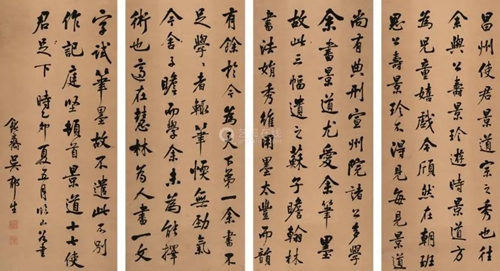 昌州使君景道宗秀也往
余與公壽景珍遊時景道方
為兒童嬉戲今頎然在朝班
思公壽景珍不得見每見景道
尚有典刑宣州院諸公多學
余書景道尤愛余筆墨
故此三幅遺之蘇子瞻翰林
書法娟秀雖用墨太豐而韻
有餘於今為天下第一余書不
足學〻者輒筆愞無勁氣
今舍子瞻而學余未為能擇
術也適在慧林為人書一文
字試筆墨故不遺此不別
作記庭堅頓首景道十七使
君足下 時己卯夏五月臨山谷書
鈍齋吳郁生